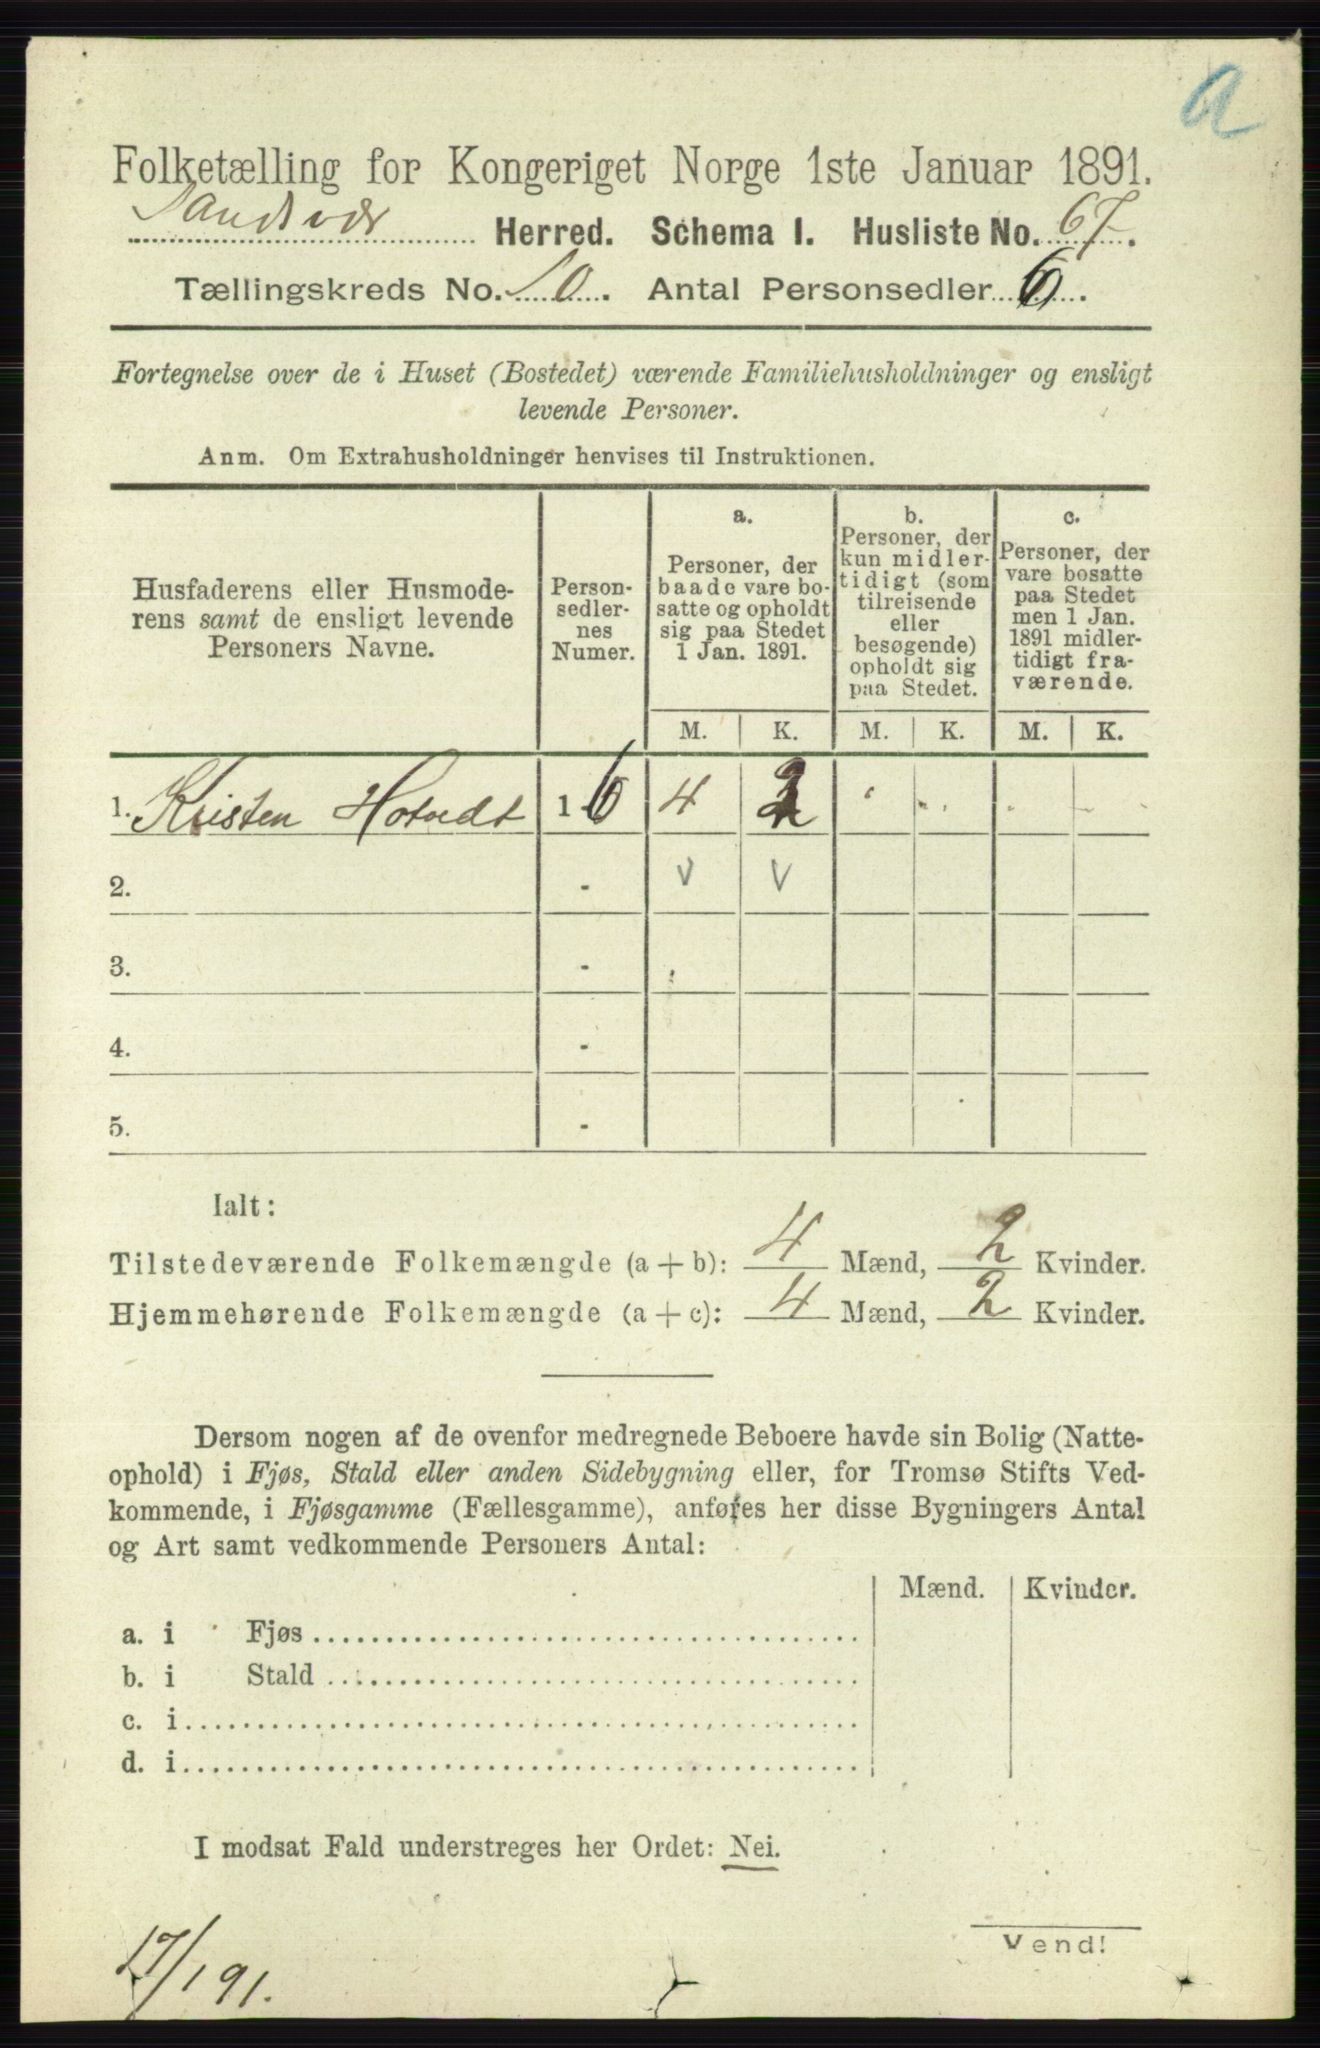 a
Folketælling for Kongeriget Norge 1ste Januar 1891.
Sandsvær Herred. Schema I. Husliste No. 67.
Tællingskreds No. 10. Antal Personsedler 6.
Fortegnelse over de i Huset (Bostedet) værende Familiehusholdninger og ensligt
levende Personer.
Anm. Om Extrahusholdninger henvises til Instruktionen.
Husfaderens eller Husmode-
rens samt de ensligt levende
Personers Navne.
Person-
sedler-
nes
Numer.
a.
Personer, der
baade vare bo-
satte og opholdt
sig paa Stedet
1 Jan. 1891.
b.
Personer, der
kun midler-
tidigt (som
tilreisende
eller
besøgende)
opholdt sig
paa Stedet.
c.
Personer, der
vare bosatte
paa Stedet
men 1 Jan.
1891 midler-
tidigt fra-
værende.
M. K. M. K. M. K.
1. Kristen Hotvedt 1-6 4 2
2. - v v
3. -
4. -
5. -
Ialt:
Tilstedeværende Folkemængde (a + b): 4 Mænd, 2 Kvinder.
Hjemmehørende Folkemængde (a + c): 4 Mænd, 2 Kvinder.
Dersom nogen af de ovenfor medregnede Beboere havde sin Bolig (Natte-
ophold) i Fjøs, Stald eller anden Sidebygning eller, for Tromsø Stifts Ved-
kommende, i Fjøsgamme (Fællesgamme), anføres her disse Bygningers Antal
og Art samt vedkommende Personers Antal:
Mænd. Kvinder.
a. i Fjøs
b. i Stald
c. i
d. i
I modsat Fald understreges her Ordet: Nei.
Vend!
17/1 91.